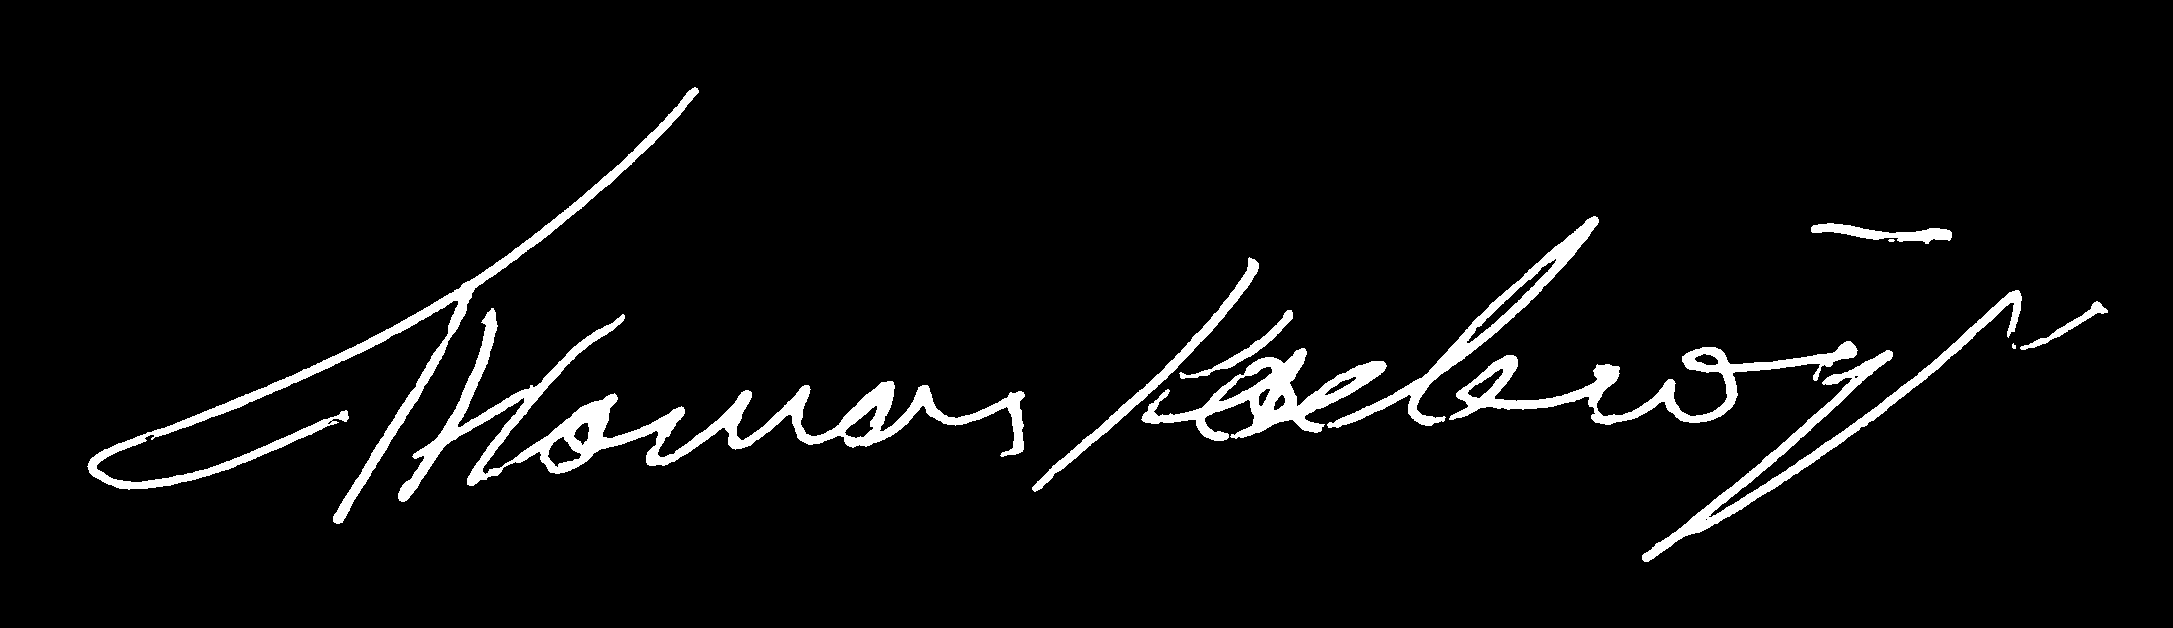 Thomas Koelewijn